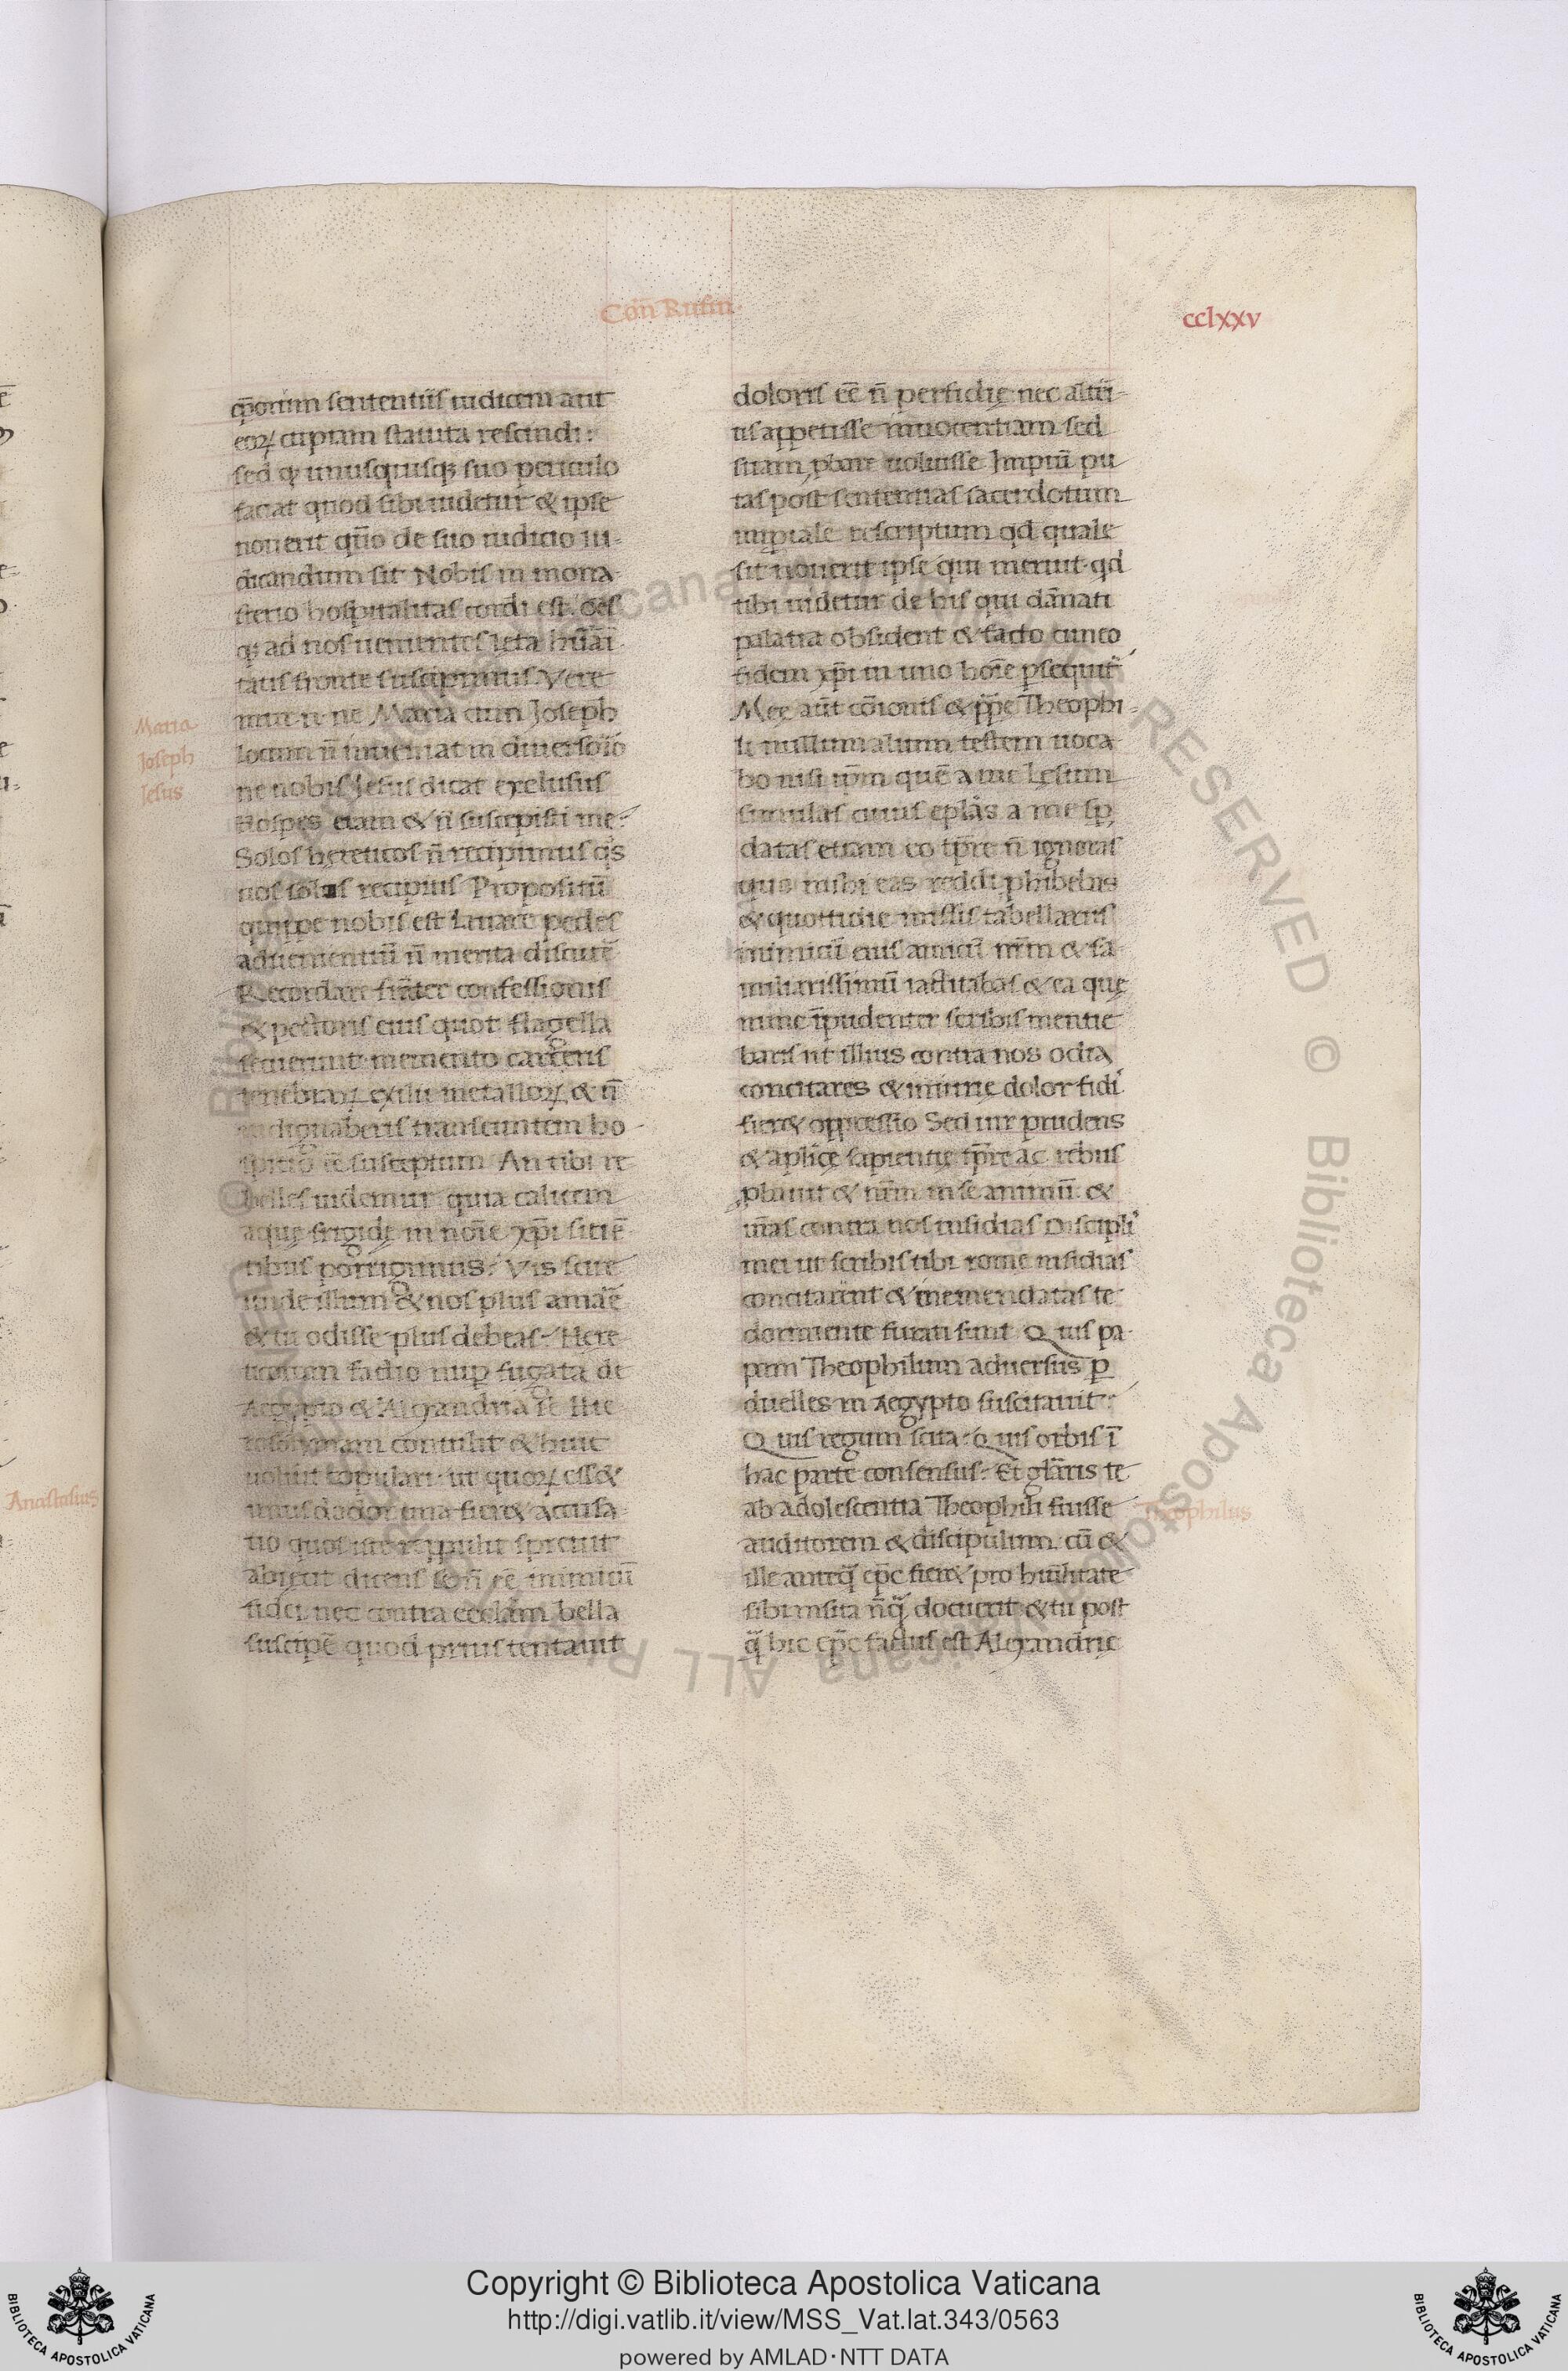 Coñ Rufiñ.
cclxxv
ep̄orum sententiis iudicem aut
eoꝝ cupiam statuta rescindi:
sed ꝙ unusquisqꝫ suo periculo
faciat quod sibi uidetur & ipse
nouerit qūo de suo iudicio iu-
dicandum sit Nobis in mona-
sterio hospitalitas cordi est. oēs
qꝫ ad nos uenientes leta hūāi-
tatis fronte suscipimus. Vere
mur .n. ne Maria cum Joseph
locum n̄ inueniat in diuersoīo
ne nobis Jesus dicat exclusus
Hospes eram & n̄ suscepistis me:
Solos hereticos n̄ recipimus q̊s
uos solos recipitis Propositū
quippe nobis est Lauare pedes
aduenientiū n̄ merita discutē
Recordare fr̄ater confessionis
& pectoris eius quot flagella
secuerunt. memento carceris
tenebraꝝ exilii metalloꝝ & n̄
indignaberis transeuntem ho-
spitio eē susceptum An tibi re
belles uidemur quia calicem
aquę frigidę in noīe xp̄i sitiē
tibus porrigimus: Vis scire
unde illum & nos plus amaē
& tu odisse plus debeas: Here
ticorum factio nup̄ fugata de
Aegypto & Alexandria se Hie
rosolymam contulit & huic
uoluit copulari ut quoꝝ ess&
unus dolor una fier& accusa
tio quos iste reppulit spreuit
abiecit dicens se n̄ eē inimicū
fidei nec contra eccłam bella
suscipē quod prius tentauit
Maria
Joseph
Jesus
Anastasius
doloris eē n̄ perfidię nec alteri-
us appetisse innocentiam sed
suam ꝓbare uoluisse Impiū pu
tas post sententias sacerdotum
imp̄iale rescriptum qd quale
sit nouerit ipse qui meruit. qd
tibi uidetur de his qui dānati
palatia obsident & facto cuneo
fidem xp̄i in uno hoīe ꝑsequūt̄
Meę aūt cōīonis & pp̄e Theophi-
li nullum alium testem uoca
bo nisi ip̄m quē a me Lesum
simulas cuius eplās a me sp̄
datas etiam eo tp̄re n̄ ignoras
quo mihi eas reddi ꝓhibebas
& quottidie missis tabellariis
inimicū eius amicū nr̄m & fa
miliarissimū iactitabas & ea quę
nunc īpudenter scribis mentie
baris ut illius contra nos odia
concitares & iniurię dolor fidi
fier& oppressio Sed uir prudens
& aplicę sapientię tp̄re ac rebus
ꝓbauit & nr̄m in se animū &
tuas contra nos insidias Discipli
mei ut scribis tibi rome insidias
concitarūt & inemendatas te
dormiente furati sunt Quis pa-
pam Theophilum aduersus ꝑ
duelles in Aegypto suscitauit:
Quis regum scita: Quis orbis ī
hac parte consensus: Et glāris te
ab adolescentia Theophili fuisse
auditorem & discipulum. cū &
ille anteq̄ ep̄c fier& pro humilitate
sibi insita nūq̄ docuerit & tu post
q̄ hic ep̄c factus est Alexandrię
Theophilus
Copyright © Biblioteca Apostolica Vaticana
http://digi.vatlib.it/view/MSS_Vat.lat.343/0563
powered by AMLAD·NTT DATA
BIBLIOTECA APOSTOLICA VATICANA
BIBLIOTECA APOSTOLICA VATICANA